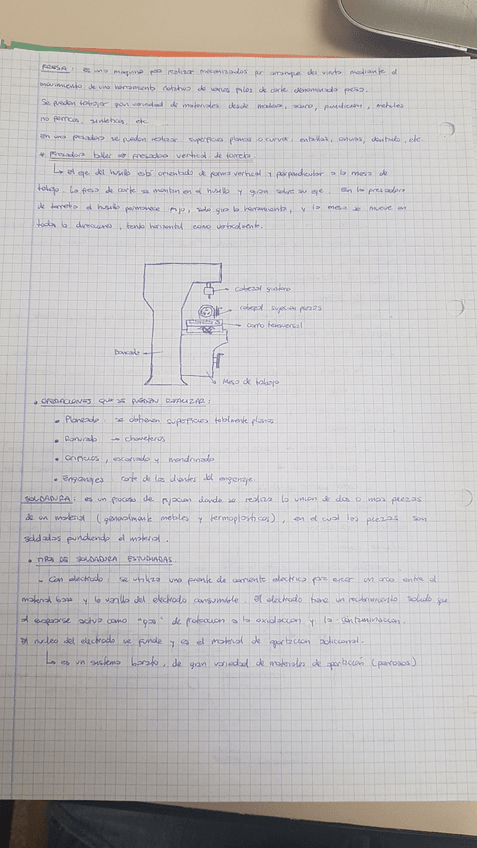 FRESA: es una maquina para realizar mecanizados por arranque de viruta mediante el
movimiento de una herramienta rotativa de varios filos de corte denominada fresa.
Se pueden trabajar gran variedad de materiales desde madera, acero, fundicion, metales
no férricos, sintéticos, etc.
En una fresadora se pueden realizar superficies planas o curvas, entallas, ranuras, dentado, etc.
Fresadora taller → fresadora vertical de torreta.
↳ el eje del husillo está orientado de forma vertical y perpendicular a la mesa de
trabajo. La fresa de corte se montan en el husillo y giran sobre su eje. En la fresadora
de torreta el husillo permanece fijo, solo gira la herramienta, y la mesa se mueve en
todas la direcciones, tanto horizontal como verticalmente.
cabezal giratorio
cabezal sujecion piezas
carro transversal
Bancada
Mesa de trabajo
• OPERACIONES QUE SE PUEDEN REALIZAR:
• Planeado: se obtienen superficies totalmente planas
• Ranurado → chaveteros
• Orificios, escariado y mandrinado
• Engranajes corte de los dientes del engranaje.
SOLDADURA: es un proceso de fijacion donde se realiza la union de dos o mas piezas
de un material (generalmente metales y termoplasticos), en el cual las piezas son
soldadas fundiendo el material.
• TIPOS DE SOLDADURA ESTUDIADAS
- Con electrodo: se utiliza una fuente de corriente electrica para crear un arco entre el
material base y la varilla del electrodo consumible. El electrodo tiene un recubrimiento solido que
al evaporarse actua como "gas" de proteccion a la oxidacion y la contaminacion.
El nucleo del electrodo se funde y es el material de aportacion adicional.
↳ es un sistema barato, de gran variedad de materiales de aportación (ferrosos)